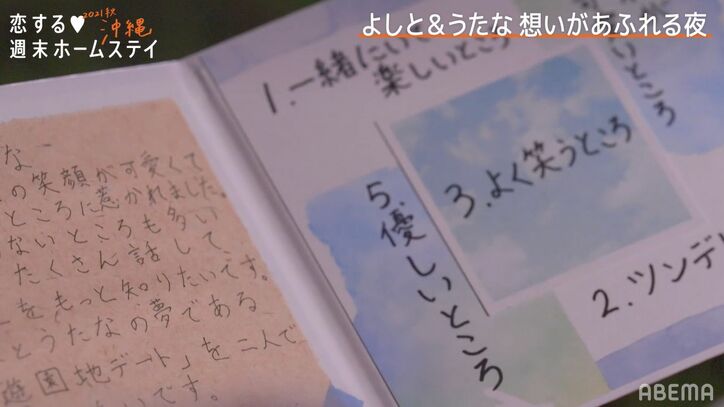 恋する♥
2021秋 沖縄
週末ホームステイ
よしと&うたな 想いがあふれる夜
な、
の笑顔が可愛くて
ところに惹かれました。
ないところも多い
たくさん話して
をもっと知りたいです。
とうたなの夢である、
遊園地デート」を二人で
いです。
1.一緒にいて
楽しいところ
ところ
3.よく笑うところ
5.優しいところ
2.ツンデレ
ABEMA